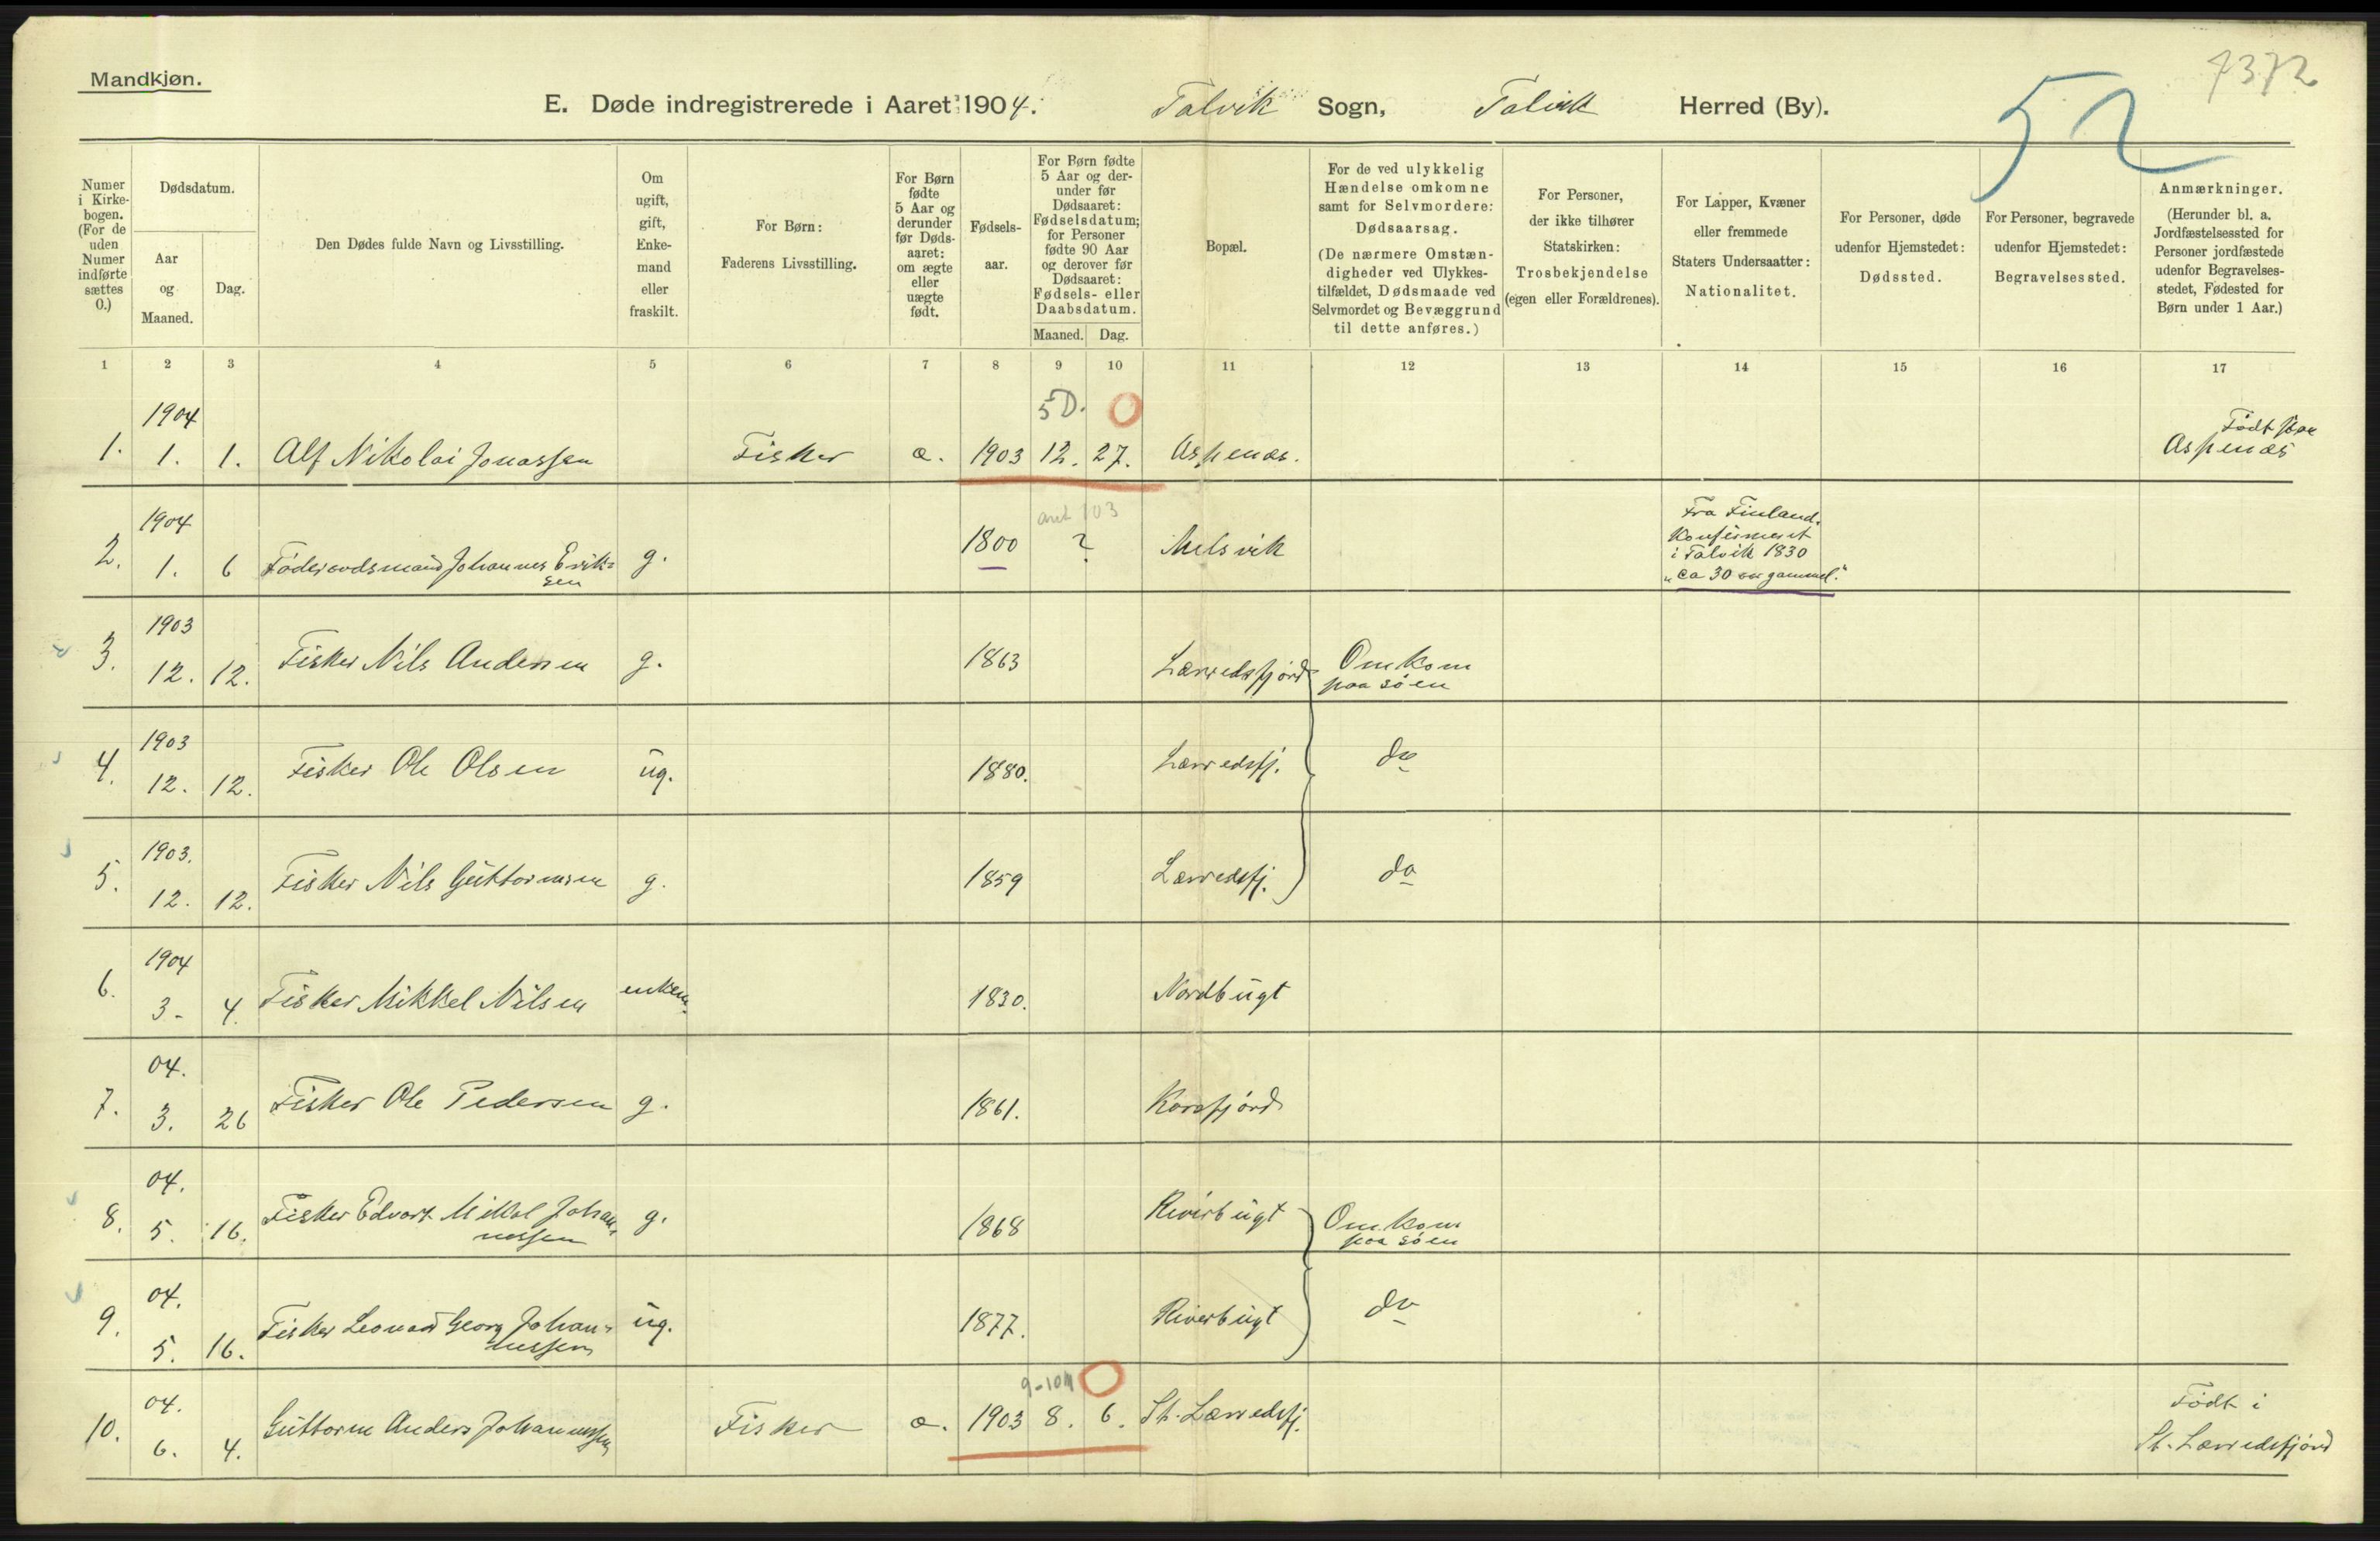 Mandkjøn.
7372
52
E. Døde indregistrerede i Aaret 1904. Talvik Sogn, Talvik Herred (By).
Numer i Kirke-bogen. (For de uden Numer indførte sættes 0.)
Dødsdatum.
Aar og Maaned.
Dag.
Den Dødes fulde Navn og Livsstilling.
Om ugift, gift, Enke-mand eller fraskilt.
For Børn: Faderens Livsstilling.
For Børn fødte 5 Aar og derunder før Døds-aaret: om ægte eller uægte født.
Fødsels-aar.
For Børn fødte 5 Aar og der-under før Dødsaaret: Fødselsdatum; for Personer fødte 90 Aar og derover før Dødsaaret: Fødsels- eller Daabsdatum.
Maaned. Dag.
Bopæl.
For de ved ulykkelig Hændelse omkomne samt for Selvmordere: Dødsaarsag. (De nærmere Omstæn-digheder ved Ulykkes-tilfældet, Dødsmaade ved Selvmordet og Bevæggrund til dette anføres.)
For Personer, der ikke tilhører Statskirken: Trosbekjendelse (egen eller Forældrenes).
For Lapper, Kvæner eller fremmede Staters Undersaatter: Nationalitet.
For Personer, døde udenfor Hjemstedet: Dødssted.
For Personer, begravede udenfor Hjemstedet: Begravelsessted.
Anmærkninger. (Herunder bl. a. Jordfæstelsessted for Personer jordfæstede udenfor Begravelses-stedet, Fødested for Børn under 1 Aar.)
1 2 3 4 5 6 7 8 9 10 11 12 13 14 15 16 17
1904 5 D. 0
1. 1. 1. Alf Nikolai Jonassen Fisker æ. 1903 12. 27. Aspenæs. Født paa Aspenæs
1904 103
2. 1. 6 Føderaadsmand Johannes Erik-sen g. 1800 ? Melsvik Fra Finland. Konfirmert i Talvik 1830 "ca 30 aar gammel."
1903
3. 12. 12. Fisker Nils Andersen g. 1863 Lærredsfjord Omkom paa søen
1903
4. 12. 12. Fisker Ole Olsen ug. 1880. Lærredsfj. do
1903.
5. 12. 12. Fisker Nils Guttormsen g. 1859 Lærredsfj. do
1904
6. 3- 4. Fisker Mikkel Nilsen enkem. 1830. Nordbugt
04.
7. 3. 26 Fisker Ole Pedersen g. 1861. Korsfjord
04.
8. 5. 16. Fisker Edvart Mikkal Johan-nessen g. 1868 Riverbugt Omkom paa søen
04.
9. 5. 16. Fisker Leonard Georg Johan-nessen ug. 1877. Riverbugt do
04. 9-10 M 0
10. 6. 4. Guttorm Anders Johannessen Fisker æ. 1903 8. 6. St. Lærredsfj. Født i St. Lærredsfjord